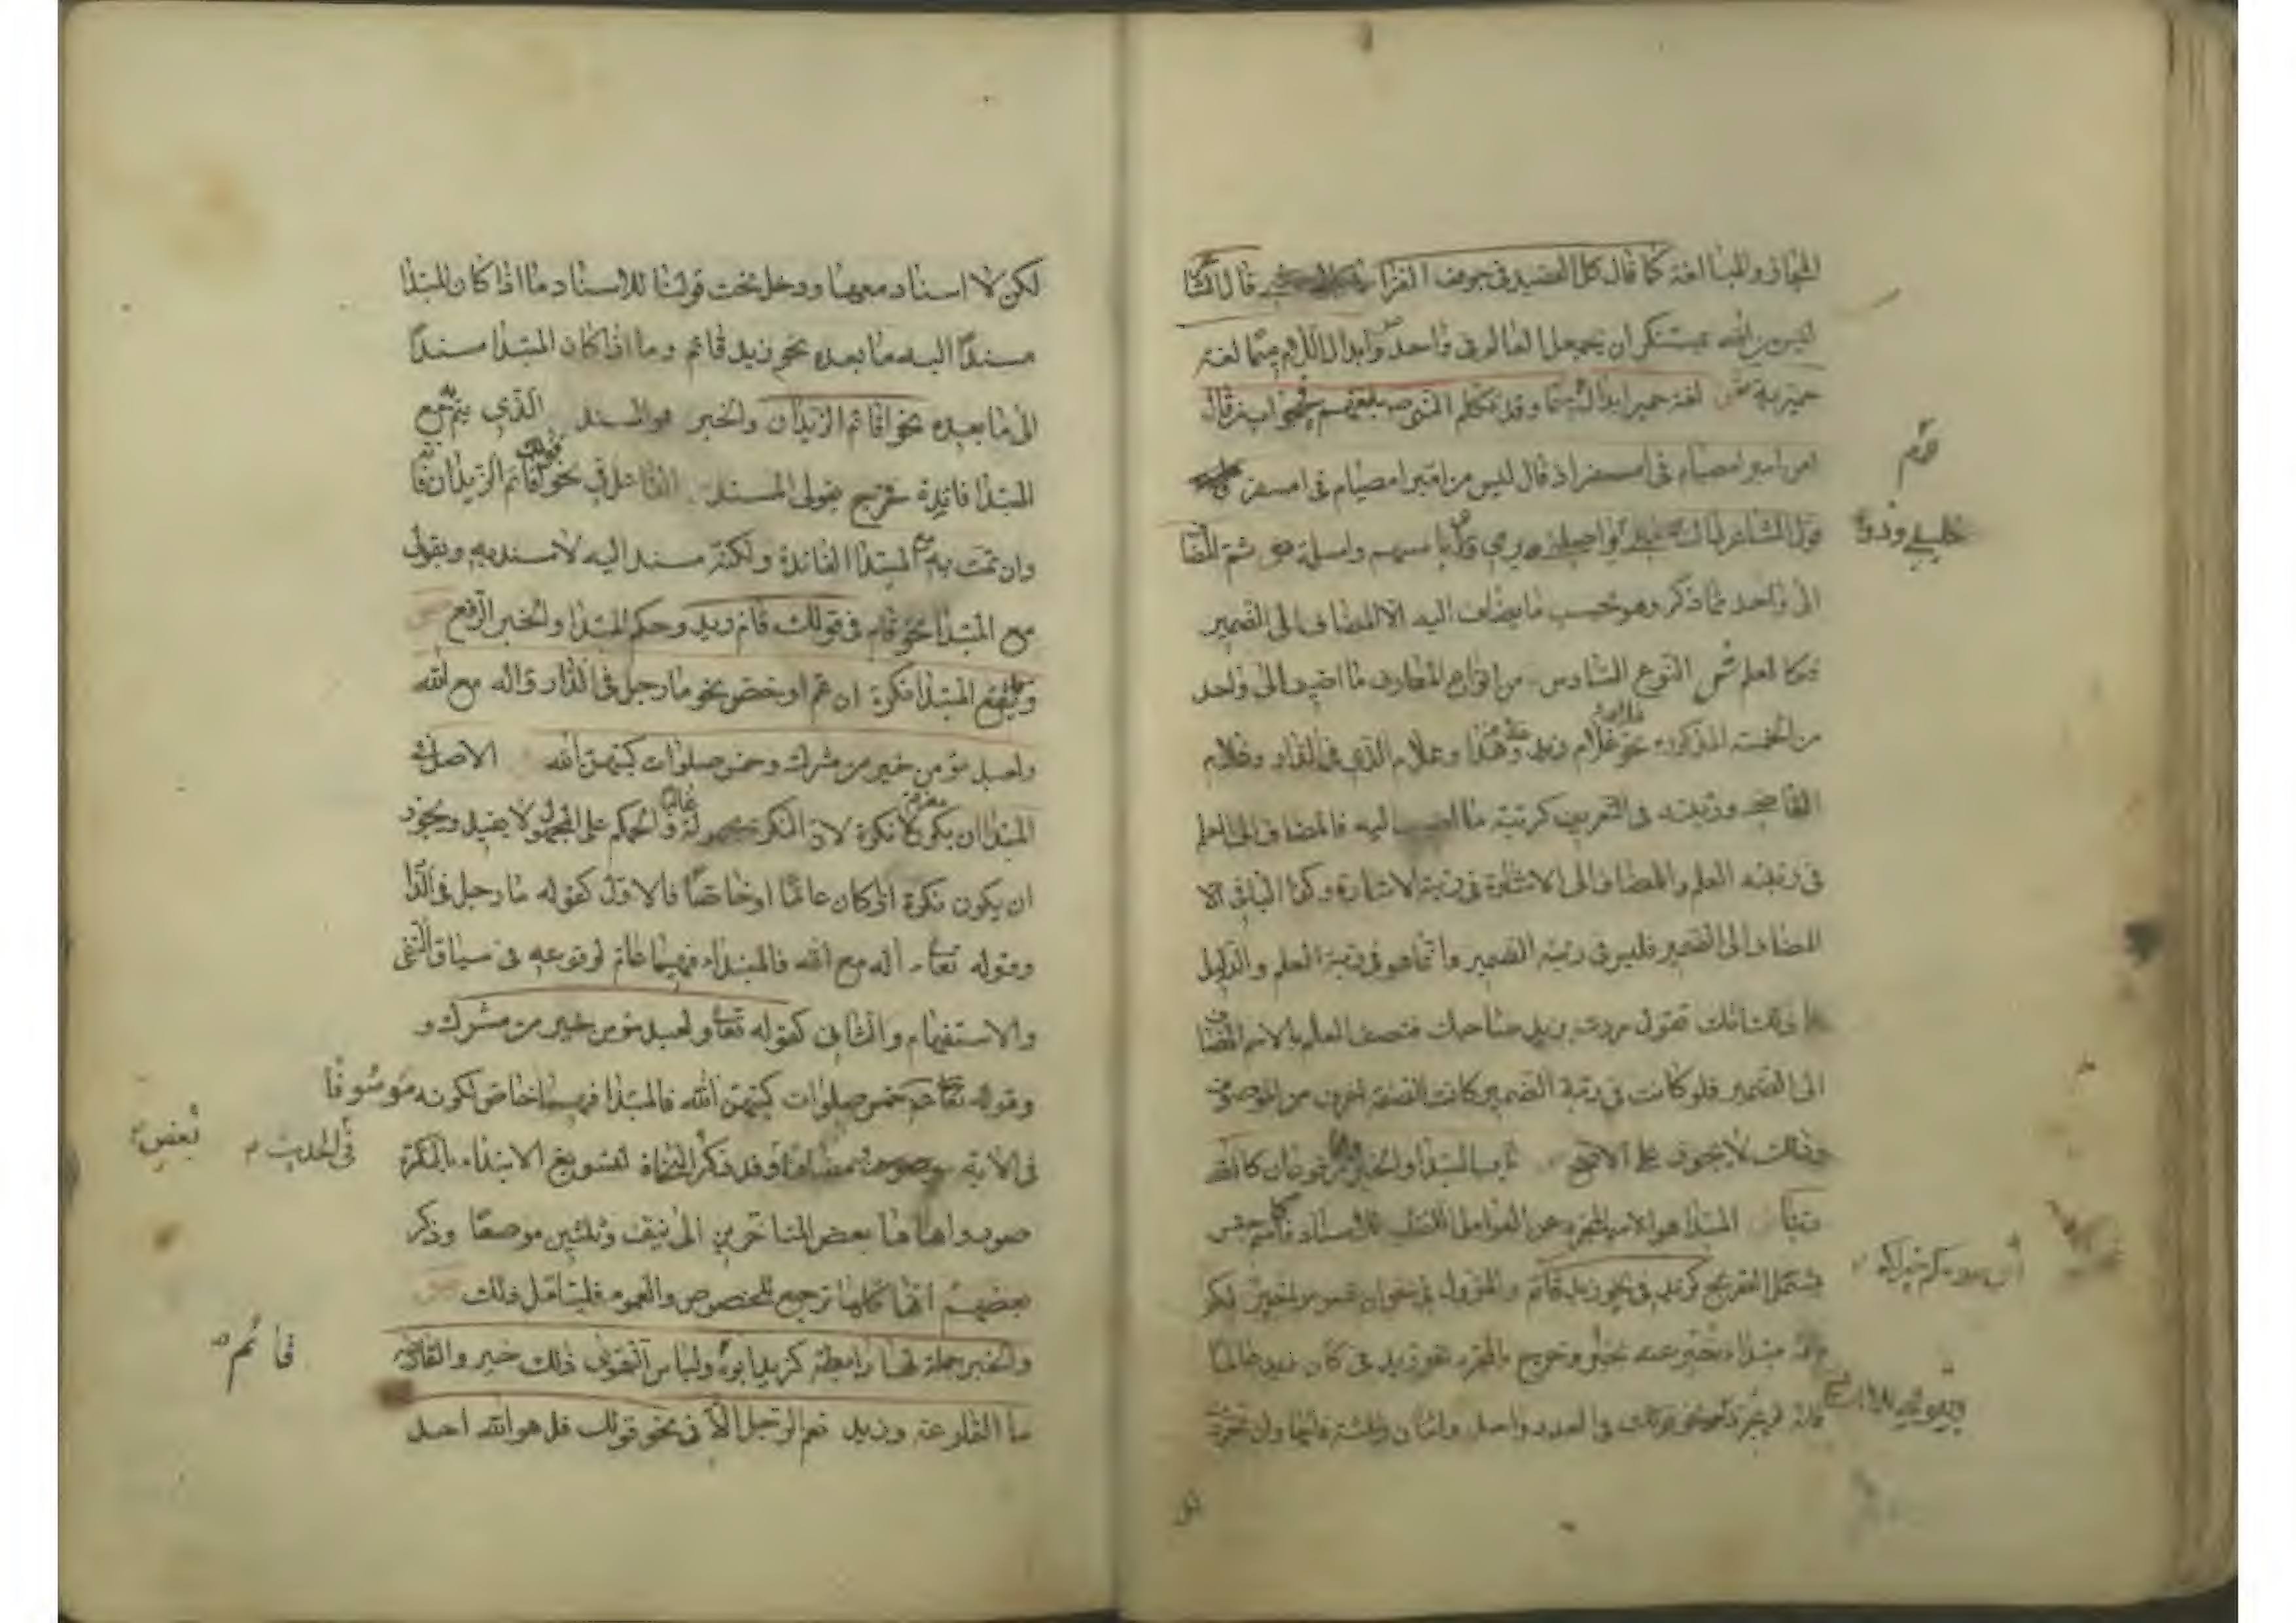 المجاز والمبالغة كما قال كل الصيد في جوف الفرا قال الشا
ليس من الله بمستنكر ان يجعل العالم في واحد وابدال اللام ميما لغة
حميرية لغة حمير ابدال ميما وقد تكلم النبي صم بلغتهم اذ قال
امن امبر امصيام في امسفر اذ قال ليس من امبر امصيام في امسفر
قول الشاعر ذاك خليلي وذو يواصلني يرمي ورائي بامسهم وامسلمة ثم المضا
الى واحد مما ذكر وهو بحسب ما يضاف اليه الا المضاف الى الضمير
فكالعلم ش النوع السادس من انواع المعارف ما اضيف الى واحد
من الخمسة المذكورة نحو غلامي غلام زيد وهذا وغلام الذي في الدار وغلام
القاضي ورتبته في التعريف كرتبة ما اضيف اليه فالمضاف الى العلم
في رتبة العلم والمضاف الى الاشارة في رتبة الاشارة وكذا الباقي الا
المضاف الى الضمير فليس في رتبة الضمير وانما هو في رتبة العلم والدليل
على ذلك انك تقول مررت بزيد صاحبك فتصف العلم بالاسم المضاف
الى الضمير فلو كانت في رتبة الضمير كانت الصفة اعرف من الموصوف
وذلك لا يجوز على الاصح باب المبتدا والخبر مرفوعان كالله
ربنا المبتدا هو الاسم المجرد عن العوامل اللفظية للاسناد فالاسم جنس
يشتمل الصريح كزيد في نحو زيد قائم والمؤول في نحو وان تصوموا خير لكم
فانه مبتداء مخبر عنه بخير وخرج بالمجرد نحو زيد في كان زيد عالما
فانه لم يتجرد نحو قولك في العدد واحد واثنان وثلثة فانها وان تجردت
لكن لا اسناد معها ودخل تحت قولنا للاسناد ما اذا كان المبتدا
مسندًا اليه ما بعده نحو زيد قائم وما اذا كان المبتدا مسندًا
الى ما بعده نحو اقائم الزيدان والخبر هو المسند الذي يتم به مع
المبتدا فائدة خرج بقولي المسند الفاعل في نحو قولك اقائم الزيدان فانه
وان تمت به مع المبتدا الفائدة ولكنه مسند اليه لا مسند به وبقولي
مع المبتدا نحو قام في قولك قام زيد وحكم المبتدا والخبر الرفع ص
ويقع المبتدا نكرة ان عم او خص نحو ما رجل في الدار واله مع الله
ولعبد مؤمن خير من مشرك وخمس صلوات كتبهن الله الاصل في
المبتدا ان يكون معرفة لا نكرة لان النكرة مجهولة غالبا والحكم على المجهول لا يفيد ويجوز
ان يكون نكرة ان كان عامًا او خاصًا فالاول كقوله ما رجل في الدا
وقوله تعا أاله مع الله فالمبتداء فيهما عام لوقوعه في سياق النفي
والاستفهام والثاني كقوله تعا ولعبد مؤمن خير من مشرك و
وقوله عم خمس صلوات كتبهن الله فالمبتدا فيهما خاص لكونه موصوفا
في الاية ومضافا في الحديث وقد ذكر بعض النحاة لتسويغ الابتداء بالنكرة
صورا وانهاها بعض المتاخرين الى نيف وثلثين موضعًا وذكر
بعضهم انها كلها ترجع للخصوص والعموم فليتامل ذلك ص
والخبر جملة لها رابطة كزيد ابوه قائم ولباس التقوى ذلك خير والقاضي
ما القارعة وزيد نعم الرجل الا في نحو قولك قل هو الله احد